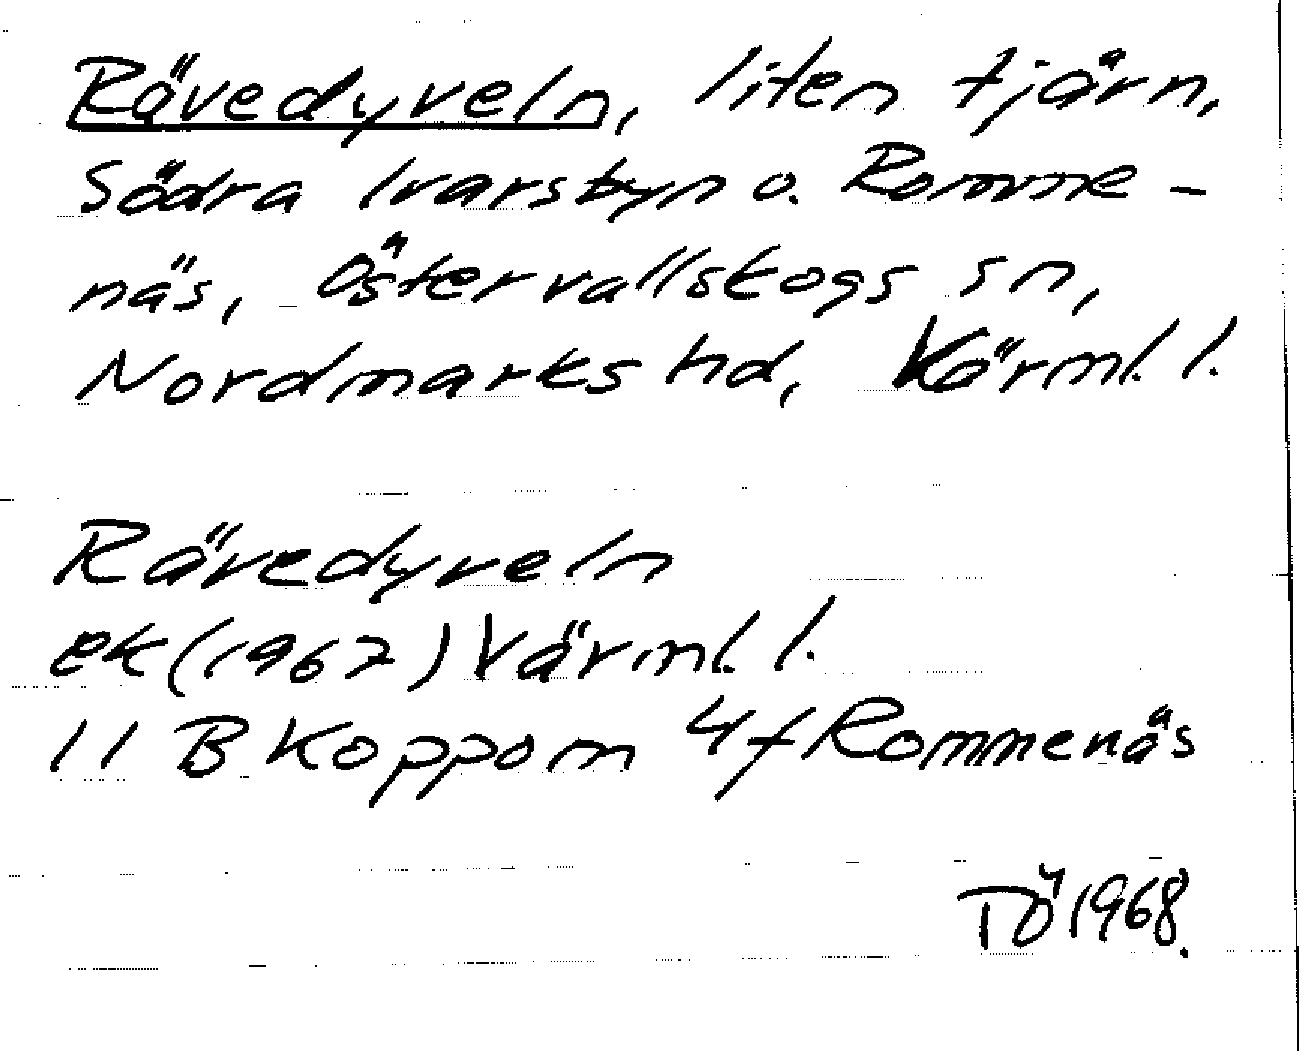 Rävedyveln, liten tjärn,
Södra Ivarsbyn o. Romme-
näs, Östervallskogs sn,
Nordmarks hd, Värml. l.
Rävedyveln
ek (1967) Värml. l.
11 B Koppom 4 f Rommenäs
TÖ 1968.